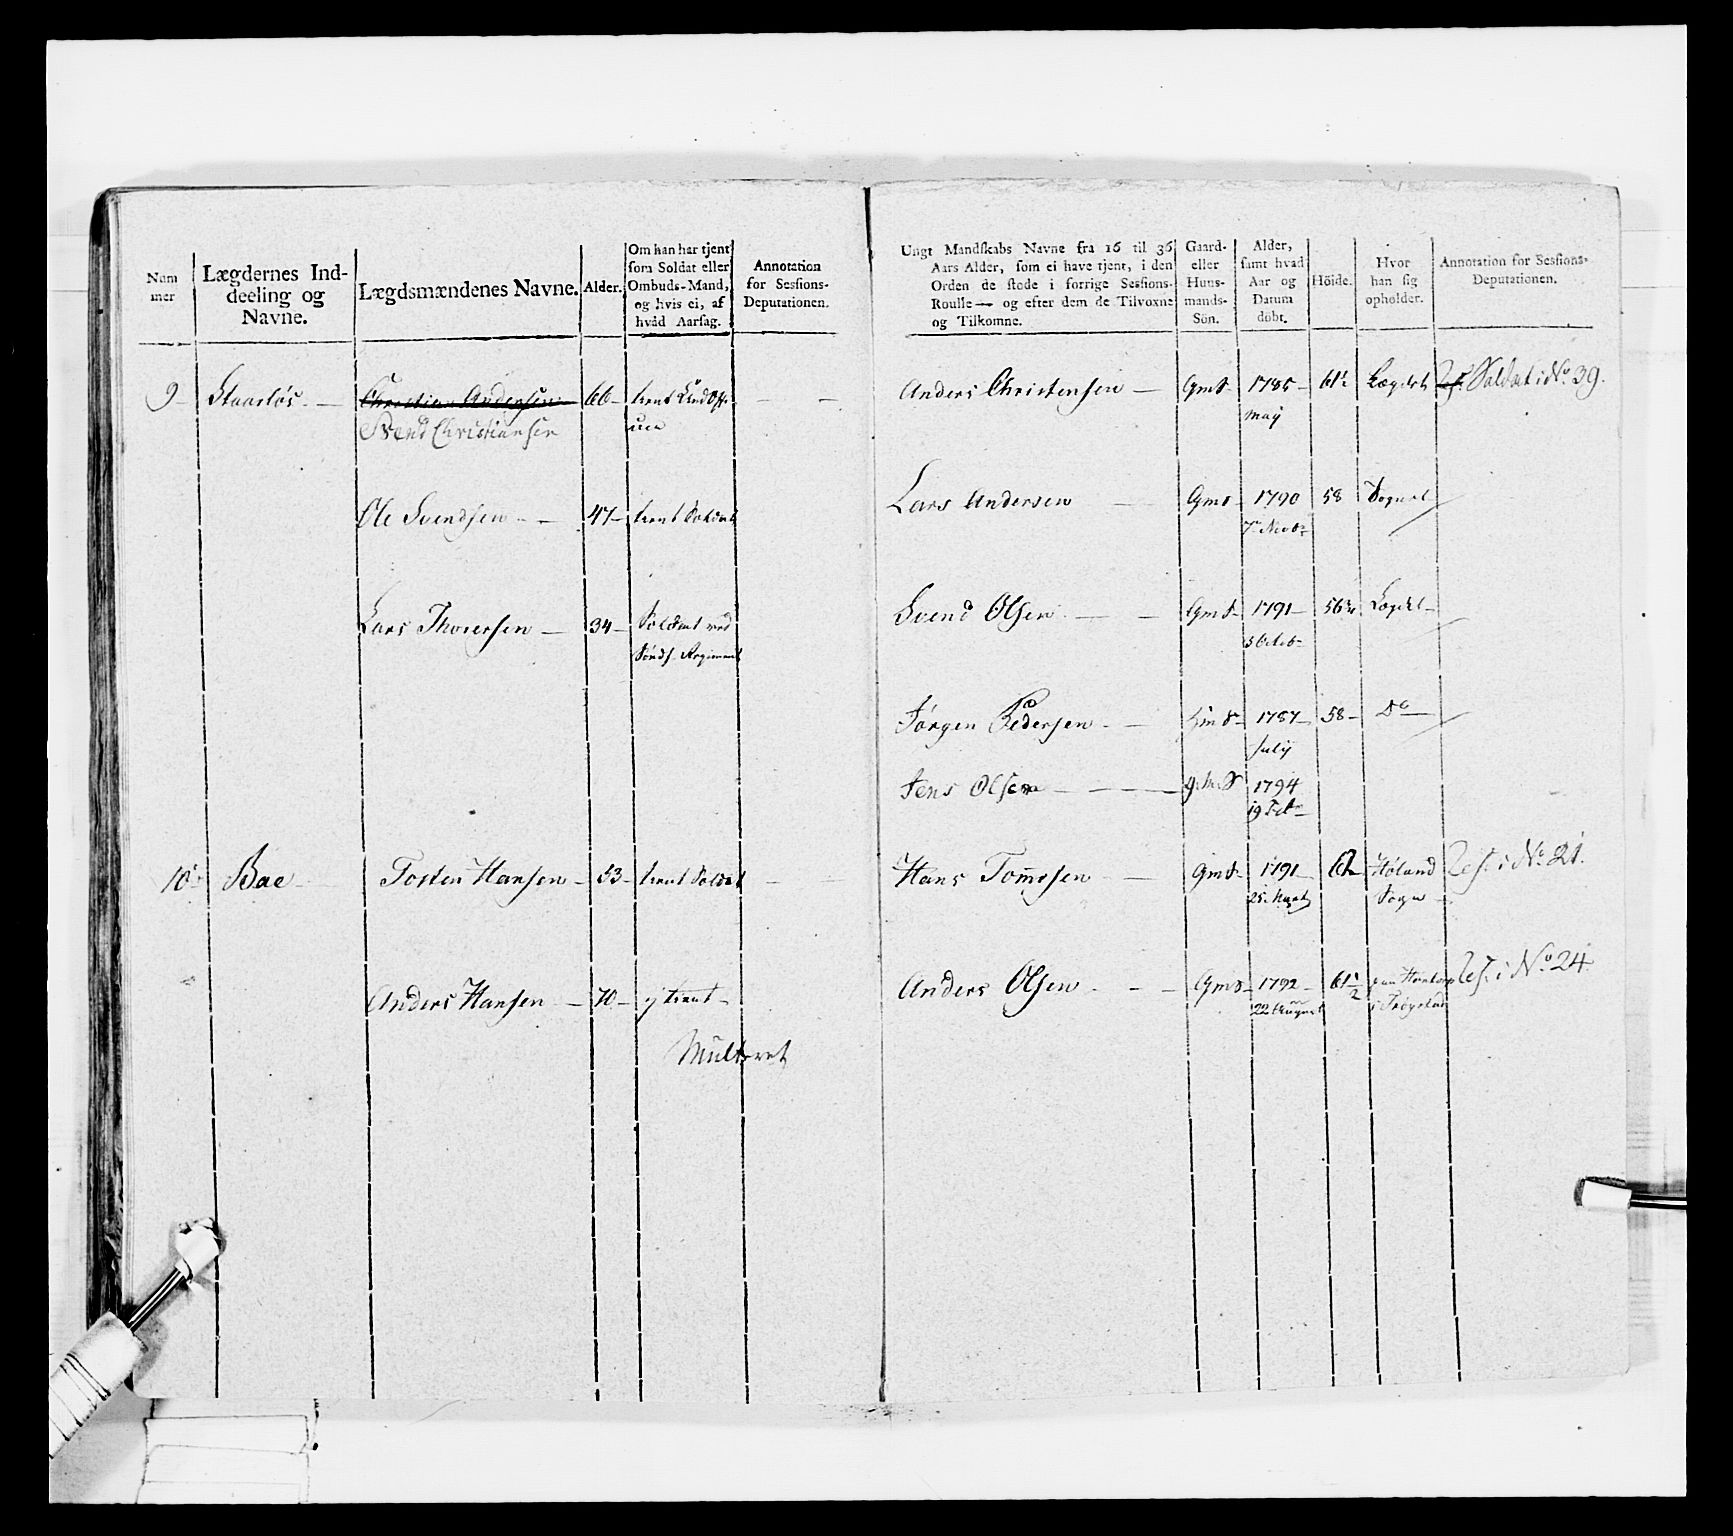 Num
mer
Lægdernes Ind-
deeling og
Navne.
Lægdsmændenes Navne.
Alder.
Om han har tjent
som Soldat eller
Ombuds-Mand,
og hvis ei, af
hvad Aarsag.
Annotation
for Sessions-
Deputationen.
Ungt Mandskabs Navne fra 16 til 36
Aars Alder, som ei have tjent, i den
Orden de stode i forrige Sessions-
Roulle — og efter dem de Tilvoxne
og Tilkomne.
Gaard-
eller
Huus-
mands-
Sön.
Alder,
samt hvad
Aar og
Datum
döbt.
Höide.
Hvor
han sig
opholder.
Annotation for Sessions-
Deputationen.
9 Christian Andersen 66
Svend Christiansen
Ole Svendsen 47 tient Soldat
Lars Thoresen 34 Soldat ved
Sönds. Regiment
10 Bae Tosten Hansen 53 tient Soldat
Anders Hansen 70 ej tient
Multeret
Anders Christensen GmS 1785 61½ Lægdet Soldat i No. 39.
may
Lars Andersen Gms 1790 58 Sognet
7 Novbr
Svend Olsen GmS 1791 Lægdet
Octob
Jörgen Pedersen HmS 1787 58 Do
July
Jens Olsen G.M.S 1794
19 Feb
Hans Tomesen GmS 1791 62 Höland Res. i No. 21.
25. Mart Sogn
Anders Olsen Gms 1792 61½ Res. i No. 24.
22 August i Trögstad